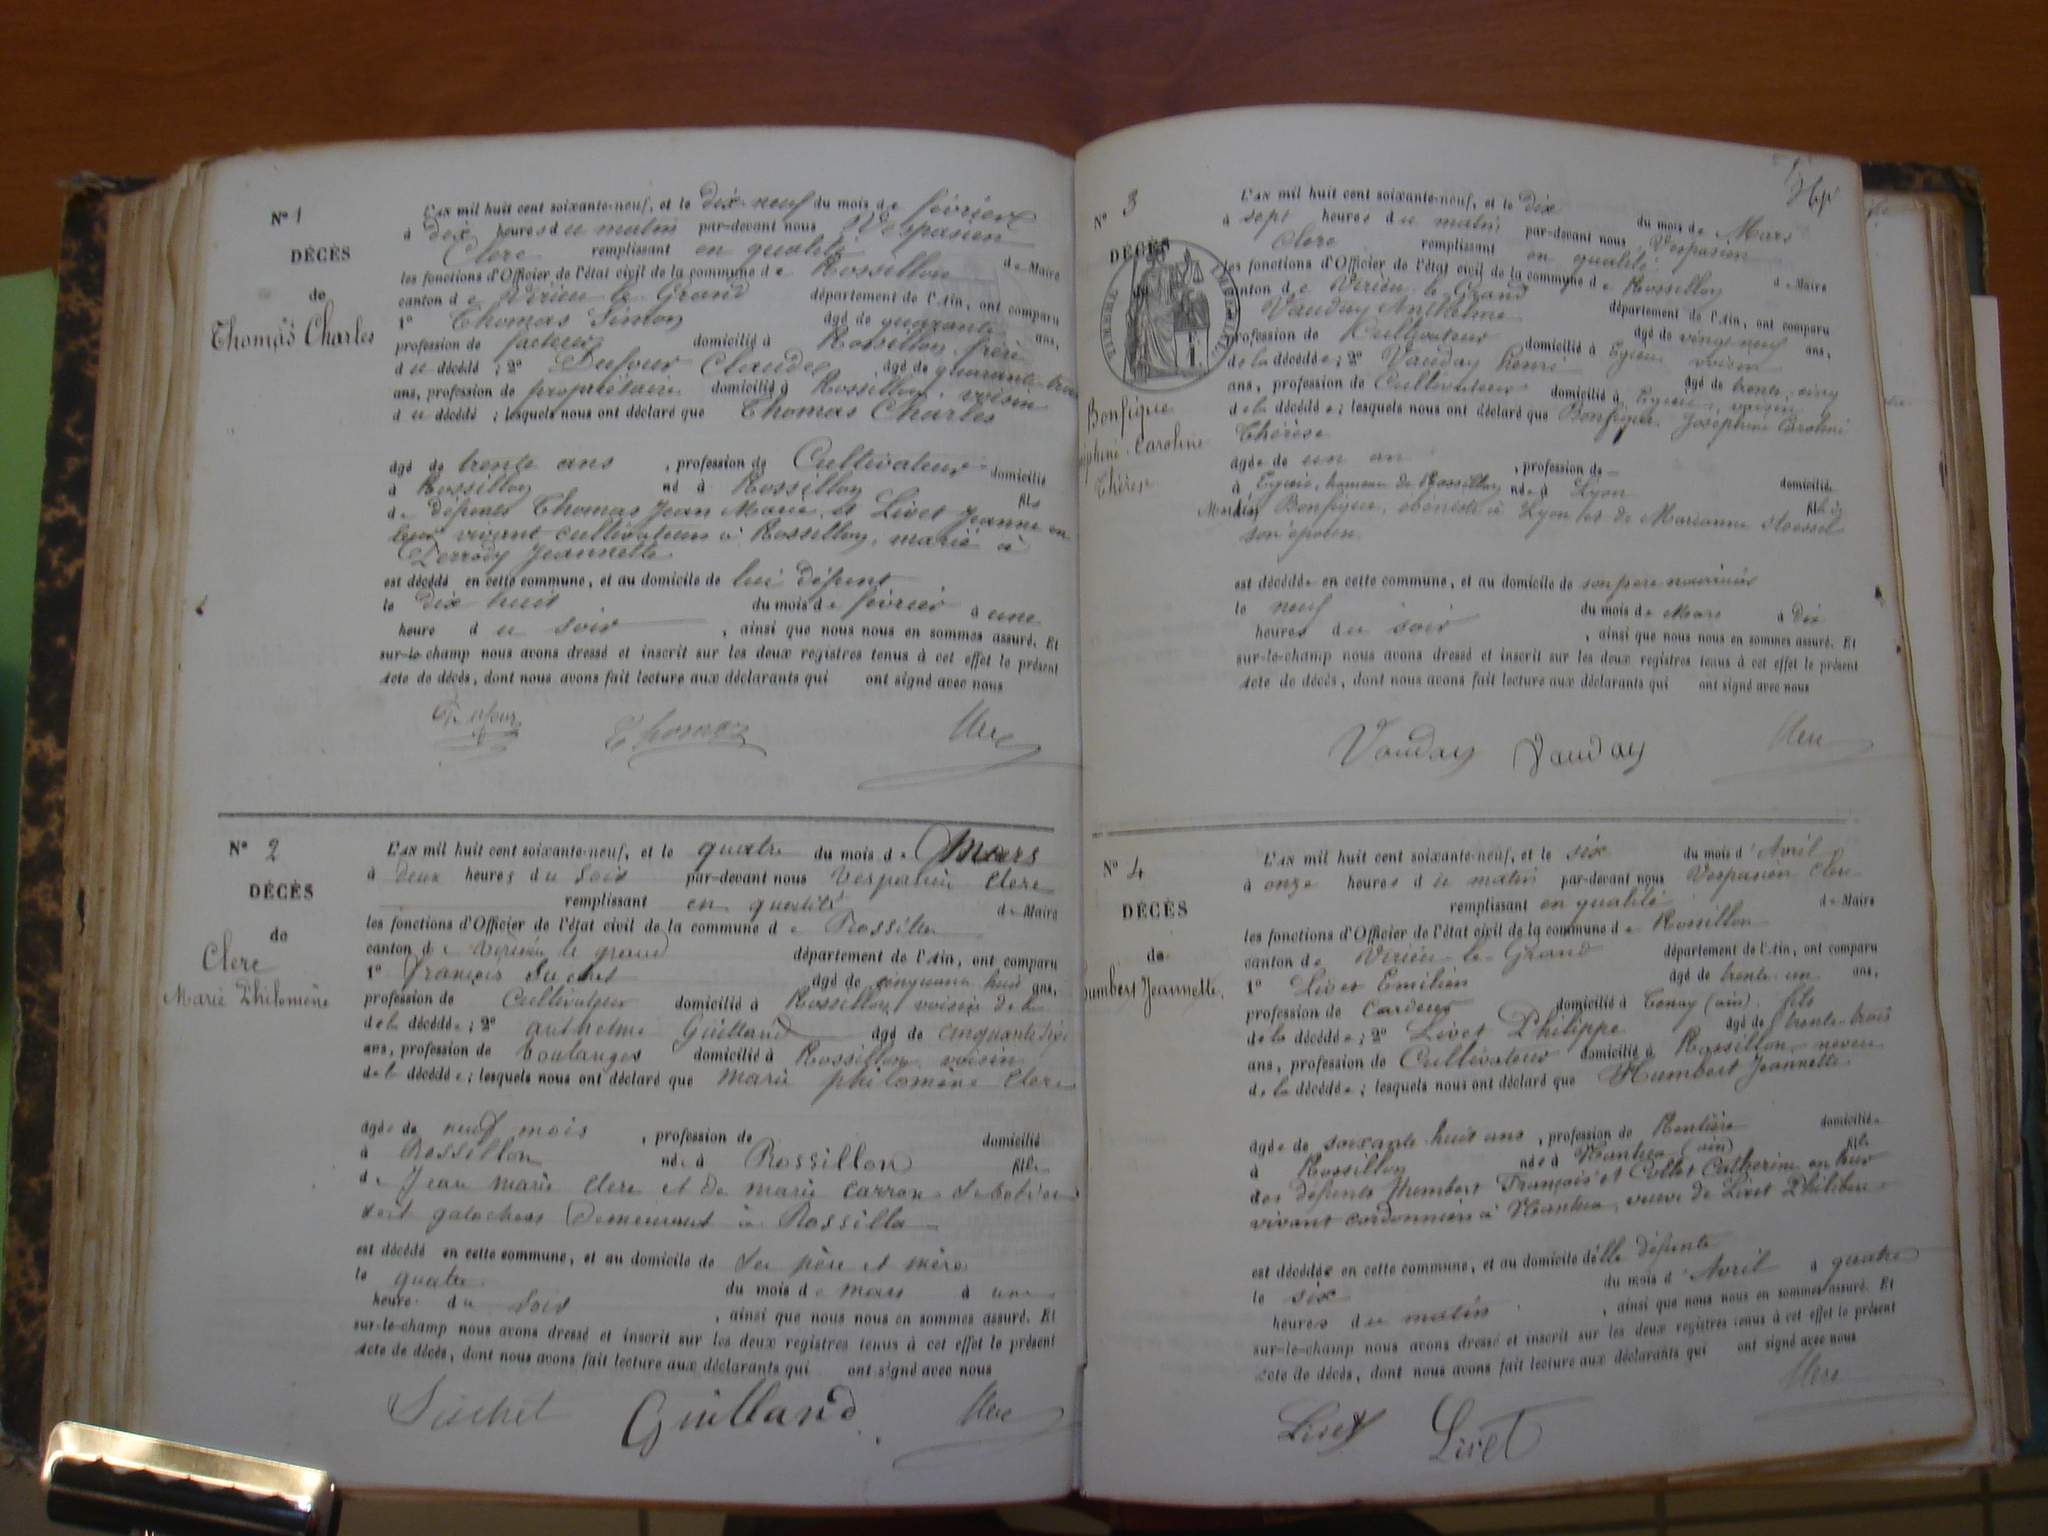 N° 1
DÉCÈS
de
Thomas Charles
L'AN mil huit cent soixante-neuf, et le dix-neuf du mois de février
à dix heures du matin par-devant nous Vespasien
Clerc remplissant en qualité de Maire
les fonctions d'Officier de l'état civil de la commune de Rossillon
canton de Virieu le Grand département de l'Ain, ont comparu
1° Thomas Simon agé de quarante ans,
profession de facteur domicilié à Rossillon, frère
du décédé ; 2° Dufour Claude agé de quarante-trois
ans, profession de propriétaire domicilié à Rossillon, voisin
du décédé ; lesquels nous ont déclaré que Thomas Charles
agé de trente ans , profession de Cultivateur domicilié
à Rossillon né à Rossillon fils
de défunts Thomas Jean Marie et Livet Jeanne en
leur vivant cultivateurs à Rossillon, marié à
Jeannette
est décédé en cette commune, et au domicile de lui défunt
le dix huit du mois de février à une
heure du soir , ainsi que nous nous en sommes assuré. Et
sur-le-champ nous avons dressé et inscrit sur les deux registres tenus à cet effet le présent
acte de décès, dont nous avons fait lecture aux déclarants qui ont signé avec nous
Dufour Thomas Clerc
N° 2
DÉCÈS
de
Clerc
Marie Philomène
L'AN mil huit cent soixante-neuf, et le quatre du mois de Mars
à deux heures du soir par-devant nous Vespasien Clerc
remplissant en qualité de Maire
les fonctions d'Officier de l'état civil de la commune de Rossillon
canton de Virieu le grand département de l'Ain, ont comparu
1° françois Suchet agé de cinquante huit ans,
profession de Cultivateur domicilié à Rossillon, voisin de la
de la décédée ; 2° anthelme Guilland agé de cinquante six
ans, profession de boulanger domicilié à Rossillon voisin
de la décédée ; lesquels nous ont déclaré que marie philomène Clerc
agée de neuf mois , profession de domicilié
à Rossillon née à Rossillon fille
de Jean marie Clerc et de marie Carron
galochers demeurant à Rossillon
est décédé en cette commune, et au domicile de ses père et mère
le quatre du mois de mars à une
heure du soir , ainsi que nous nous en sommes assuré. Et
sur-le-champ nous avons dressé et inscrit sur les deux registres tenus à cet effet le présent
acte de décès, dont nous avons fait lecture aux déclarants qui ont signé avec nous
Suchet Guilland Clerc
N° 3
DÉCÈS
TIMBRE IMPÉRIAL
Bonfigue
Caroline
Thérèse
L'AN mil huit cent soixante-neuf, et le dix du mois de Mars
à sept heures du matin par-devant nous Vespasien
Clerc remplissant en qualité de Maire
les fonctions d'Officier de l'état civil de la commune de Rossillon
canton de Virieu le Grand département de l'Ain, ont comparu
Vauday Anthelme agé de vingt neuf ans,
profession de Cultivateur domicilié à Egieu voisin
de la décédée ; 2° Vauday henri agé de trente cinq
ans, profession de Cultivateur domicilié à Egieu, voisin
de la décédée ; lesquels nous ont déclaré que Bonfigue Joséphine Caroline
Thérèse
agée de un an , profession de domicilié
à Egieu, hameau de Rossillon née à Lyon fille de
Bonfigue, ébéniste à Lyon et de Marianne Stoessel
son épouse
est décédée en cette commune, et au domicile de son père nourricier
le neuf du mois de Mars à Dix
heures du soir , ainsi que nous nous en sommes assuré. Et
sur-le-champ nous avons dressé et inscrit sur les deux registres tenus à cet effet le présent
acte de décès, dont nous avons fait lecture aux déclarants qui ont signé avec nous
Vauday Vauday Clerc
N° 4
DÉCÈS
de
Humbert Jeannette
L'AN mil huit cent soixante-neuf, et le six du mois d'Avril
à onze heures du matin par-devant nous Vespasien Clerc
remplissant en qualité de Maire
les fonctions d'Officier de l'état civil de la commune de Rossillon
canton de Virieu le Grand département de l'Ain, ont comparu
1° Livet Emilien agé de trente un ans,
profession de Cardeur domicilié à Tenay (ain) fils
de la décédée ; 2° Livet Philippe agé de trente-trois
ans, profession de Cultivateur domicilié à Rossillon, neveu
de la décédée ; lesquels nous ont déclaré que Humbert Jeannette
agée de soixante huit ans , profession de Rentière domiciliée
à Rossillon née à Nantua (ain) fille
des défunts Humbert François et Collet Catherine en leur
vivant cordonniers à Nantua, veuve de Livet Philibert
est décédée en cette commune, et au domicile d'elle défunte
le six du mois d'Avril à quatre
heures du matin , ainsi que nous nous en sommes assuré. Et
sur-le-champ nous avons dressé et inscrit sur les deux registres tenus à cet effet le présent
acte de décès, dont nous avons fait lecture aux déclarants qui ont signé avec nous
Livet Livet Clerc